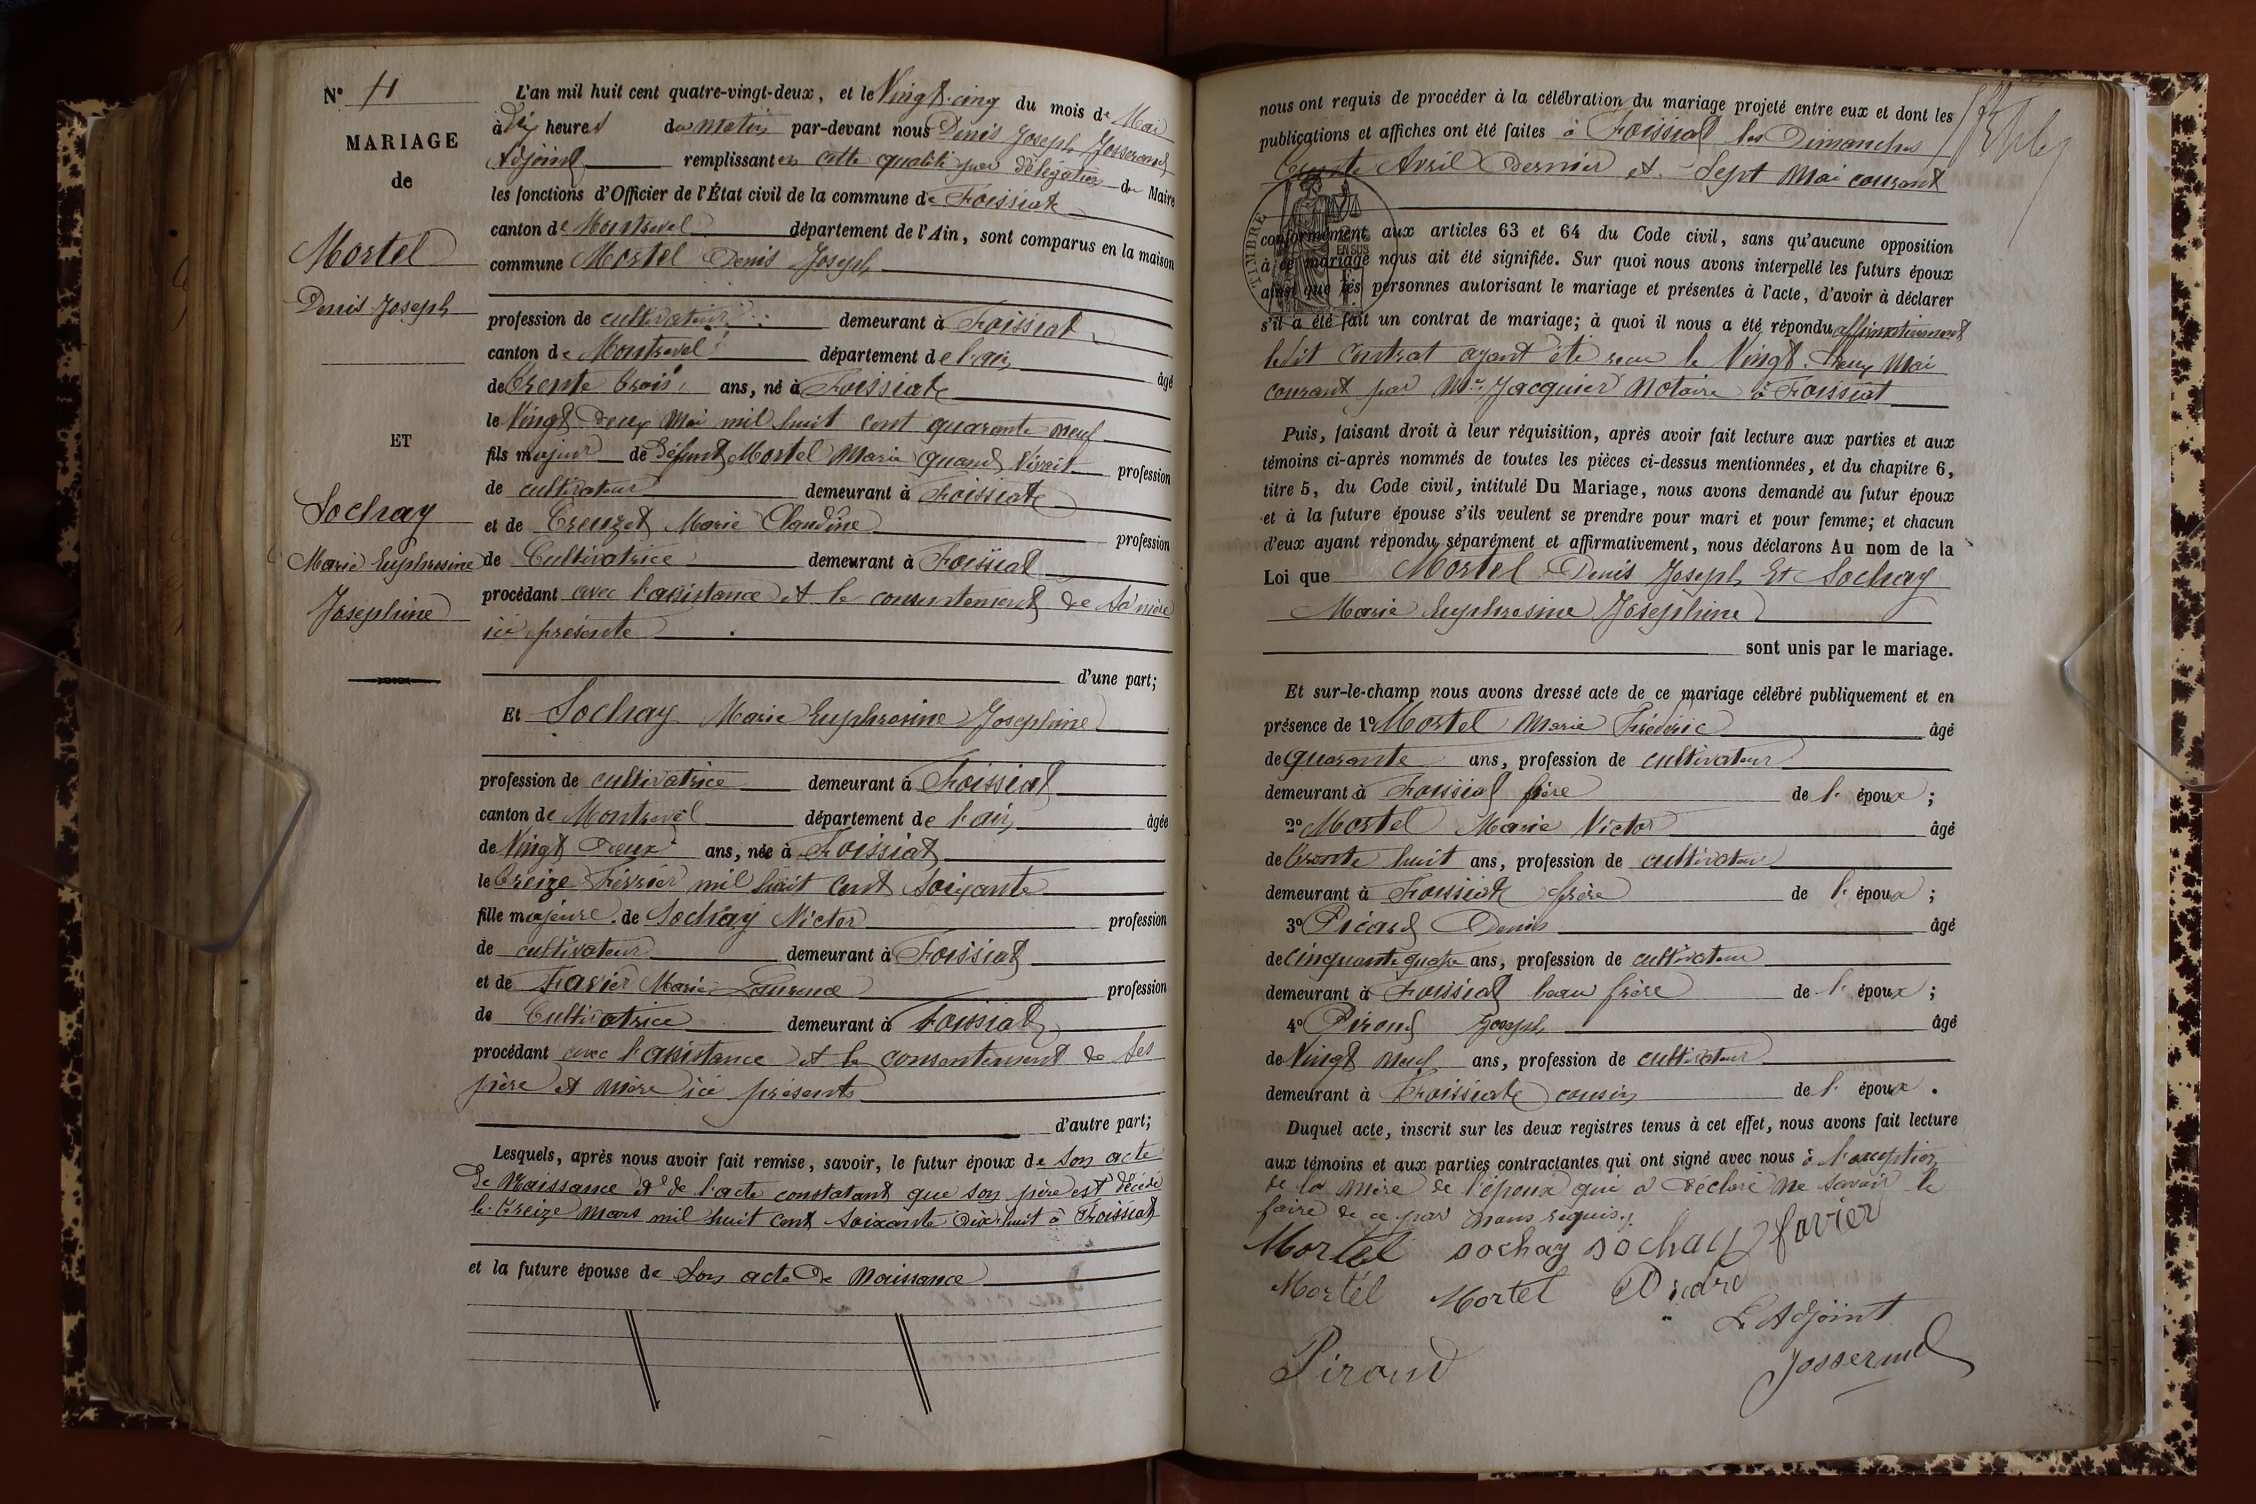 N° 11
MARIAGE
de
Mortel
Denis Joseph
ET
Sochay
Marie Euphrosine
Josephine
L'an mil huit cent quatre-vingt-deux, et le Vingt-cinq du mois de Mai
à dix heures du matin par-devant nous Denis Joseph Josserand
Adjoint remplissant en cette qualité par délégation du Maire
les fonctions d'Officier de l'État civil de la commune de Foissiat
canton de Montrevel département de l'Ain, sont comparus en la maison
commune Mortel Denis Joseph
profession de cultivateur demeurant à Foissiat
canton de Montrevel département de l'ain âgé
de trente trois ans, né à Foissiat
le Vingt deux Mai mil huit cent quarante neuf
fils majeur de défunt Mortel Marie quand vivait profession
de cultivateur demeurant à Foissiat
et de Creuzet Marie Claudine profession
de Cultivatrice demeurant à Foissiat
procédant avec l'assistance et le consentement de sa mère
ici présente
d'une part;
Et Sochay Marie Euphrosine Josephine
profession de cultivatrice demeurant à Foissiat
canton de Montrevel département de l'ain âgée
de Vingt Deux ans, née à Foissiat
le treize Février mil huit cent soixante
fille majeure de Sochay Victor profession
de cultivateur demeurant à Foissiat
et de Favier Marie Laurence profession
de Cultivatrice demeurant à Foissiat
procédant avec l'assistance et le consentement de ses
père et mère ici présents
d'autre part;
Lesquels, après nous avoir fait remise, savoir, le futur époux de son acte
de Naissance et de l'acte constatant que son père est décédé
le treize mars mil huit cent soixante dix huit à Foissiat
et la future épouse de son acte de Naissance
nous ont requis de procéder à la célébration du mariage projeté entre eux et dont les
publications et affiches ont été faites à Foissiat les Dimanches
trente Avril dernier et Sept mai courant
TIMBRE
EN SUS
conformément aux articles 63 et 64 du Code civil, sans qu'aucune opposition
à ce mariage nous ait été signifiée. Sur quoi nous avons interpellé les futurs époux
ainsi que les personnes autorisant le mariage et présentes à l'acte, d'avoir à déclarer
s'il a été fait un contrat de mariage; à quoi il nous a été répondu affirmativement
ledit Contrat ayant été reçu le Vingt deux Mai
courant par Me Jacquier Notaire à Foissiat
Puis, faisant droit à leur réquisition, après avoir fait lecture aux parties et aux
témoins ci-après nommés de toutes les pièces ci-dessus mentionnées, et du chapitre 6,
titre 5, du Code civil, intitulé Du Mariage, nous avons demandé au futur époux
et à la future épouse s'ils veulent se prendre pour mari et pour femme; et chacun
d'eux ayant répondu séparément et affirmativement, nous déclarons Au nom de la
Loi que Mortel Denis Joseph Et Sochay
Marie Euphrosine Josephine
sont unis par le mariage.
Et sur-le-champ nous avons dressé acte de ce mariage célébré publiquement et en
présence de 1° Mortel Marie Frédéric âgé
de quarante ans, profession de cultivateur
demeurant à Foissiat frère de l' époux;
2° Mortel Marie Victor âgé
de trente huit ans, profession de cultivateur
demeurant à Foissiat frère de l' époux;
3° Picard Denis âgé
de cinquante quatre ans, profession de cultivateur
demeurant à Foissiat beau frère de l' époux;
4° Piroud Joseph âgé
de Vingt Neuf ans, profession de cultivateur
demeurant à Foissiat cousin de l' époux.
Duquel acte, inscrit sur les deux registres tenus à cet effet, nous avons fait lecture
aux témoins et aux parties contractantes qui ont signé avec nous à l'exception
de la mère de l'époux qui a déclaré ne savoir le
faire de ce par nous requis.
Mortel sochay sochay favier
Mortel Mortel Picard
L'Adjoint
Piroud Josserand